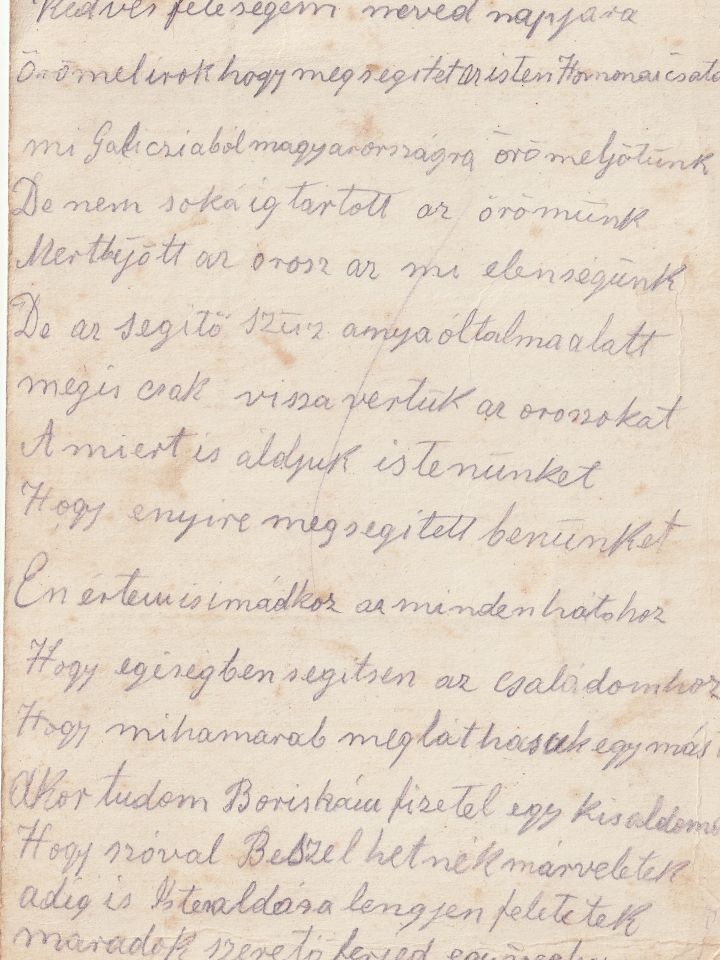 Kedves feleségem neved napjára
Örömel irok hogy megsegitet az isten Homonai csata
mi Galicziaból magyarországra örömel jötünk
De nem sokáig tartott az örömünk
Mert bejött az orosz az mi elenségünk
De az segitö szüz anya óltalma alatt
mégis csak viszavertük az oroszokat
A miert is áldjuk istenünket
Hogy enyire megsegitett benünket
En értem is imádkoz az mindenhátohoz
Hogy egéségben segitsen az családomhoz
Hogy mihamarab megláthasuk egymás
Akor tudom Boriskám fizetel egy kis aldomá
Hogy szóval Beszel hetnék már veletek
adig is Isten aldása lengjen feletetek
maradok szeretö ferjed